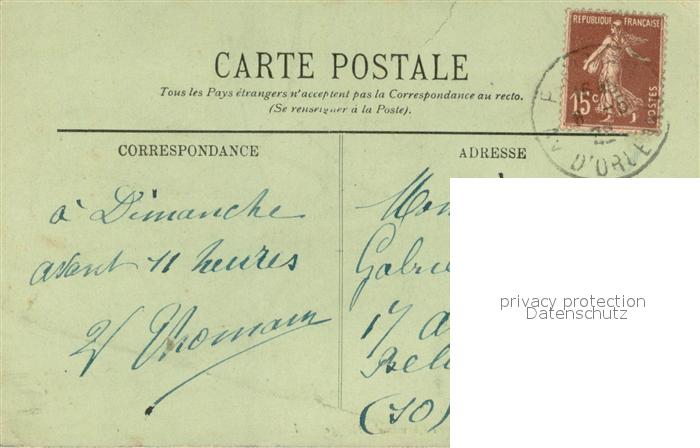 CARTE POSTALE
Tous les Pays étrangers n'acceptent pas la Correspondance au recto.
(Se renseigner à la Poste).
REPUBLIQUE FRANÇAISE
15c
POSTES
D'ORLE
CORRESPONDANCE
ADRESSE
à Dimanche
avant 11 heures
Mon
Gabrie
17 a
(70)
privacy protection
Datenschutz